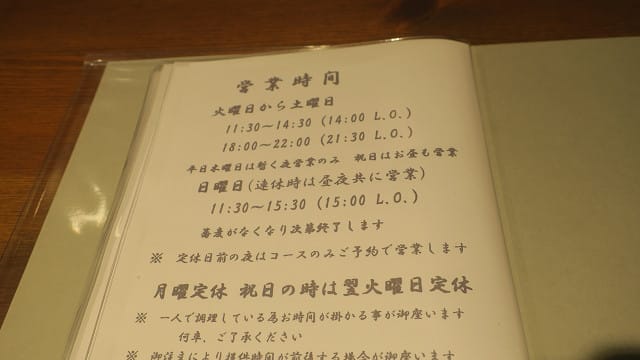 営業時間
火曜日から土曜日
11:30〜14:30 (14:00 L.O.)
18:00〜22:00 (21:30 L.O.)
平日木曜日は暫く夜営業のみ 祝日はお昼も営業
日曜日(連休時は昼夜共に営業)
11:30〜15:30 (15:00 L.O.)
蕎麦がなくなり次第終了します
※ 定休日前の夜はコースのみご予約で営業します
月曜定休 祝日の時は翌火曜日定休
※ 一人で調理している為お時間が掛かる事が御座います
何卒、ご了承ください
※ 御注文により提供時間が前後する場合が御座います